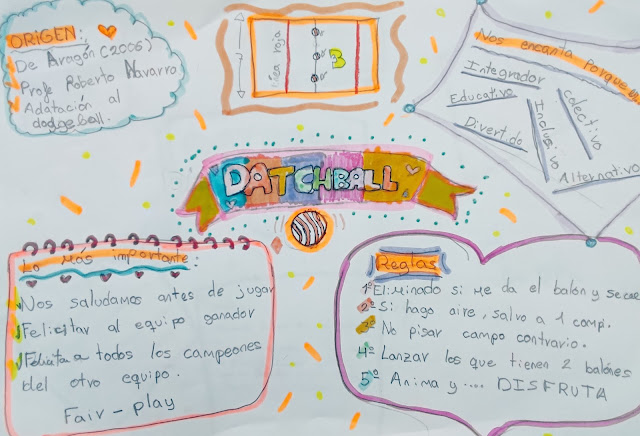 ORIGEN:
De Aragón (2006)
Profe Roberto Navarro
Adatación al
dodgeball.
Línea roja
3
Nos encanta porque es
Integrador
Educativo
Divertido
Inclusivo
colectivo
Alternativo
DATCHBALL
Lo más importante:
Nos saludamos antes de jugar
Felicitar al equipo ganador
Felicitar a todos los campeones
del otro equipo.
Fair-play
Reglas
1º Eliminado si me da el balón y se cae
2º Si hago aire, salvo a 1 comp.
3º No pisar campo contrario.
4º Lanzar los que tienen 2 balones
5º Anima y .... DISFRUTA